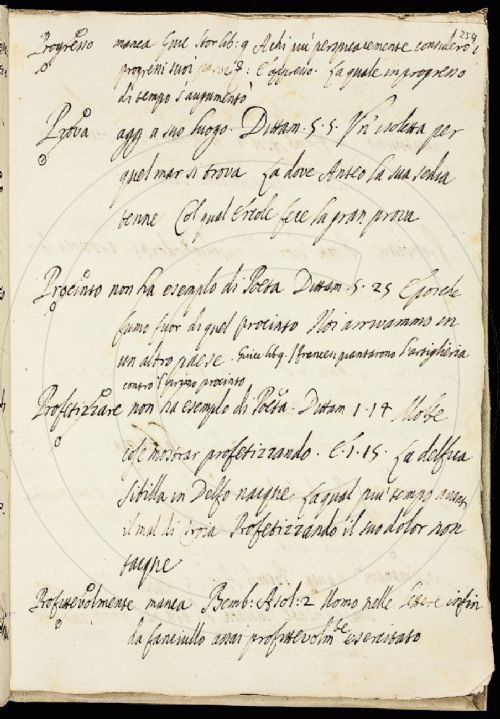 254
Progresso manca Guic stor lib: 9 A chi più perspicacemente considerò i
progressi suoi : E appresso. La quale in progresso
di tempo s'augumentò
Prova agg a suo luogo. Dittam. 5. 5. Un' isoletta per
quel mar si trova La dove Anteo la sua sedia
tenne Col qual Ercole fece la gran prova
Procinto non ha esempio di Poeta Dittam. 5. 25 E poiche
fumo fuor di quel procinto Noi arrivammo in
un altro paese. Guic lib 9. I francesi piantarono l'artiglieria
contro l' procinto
Profetizzare non ha esempio di Poeta. Dittam 1. 14 Molte
cose mostrar profetizzando. E. 1. 15. La delfica
Sibilla in Delfo nacque La qual più tempo avanti
il mal di Troia Profetizzando il suo dolor non
tacque
Profittevolmente manca Bemb: Asol: 2 Uomo nelle lettere infin
da fanciullo assai profittevolmte esercitato